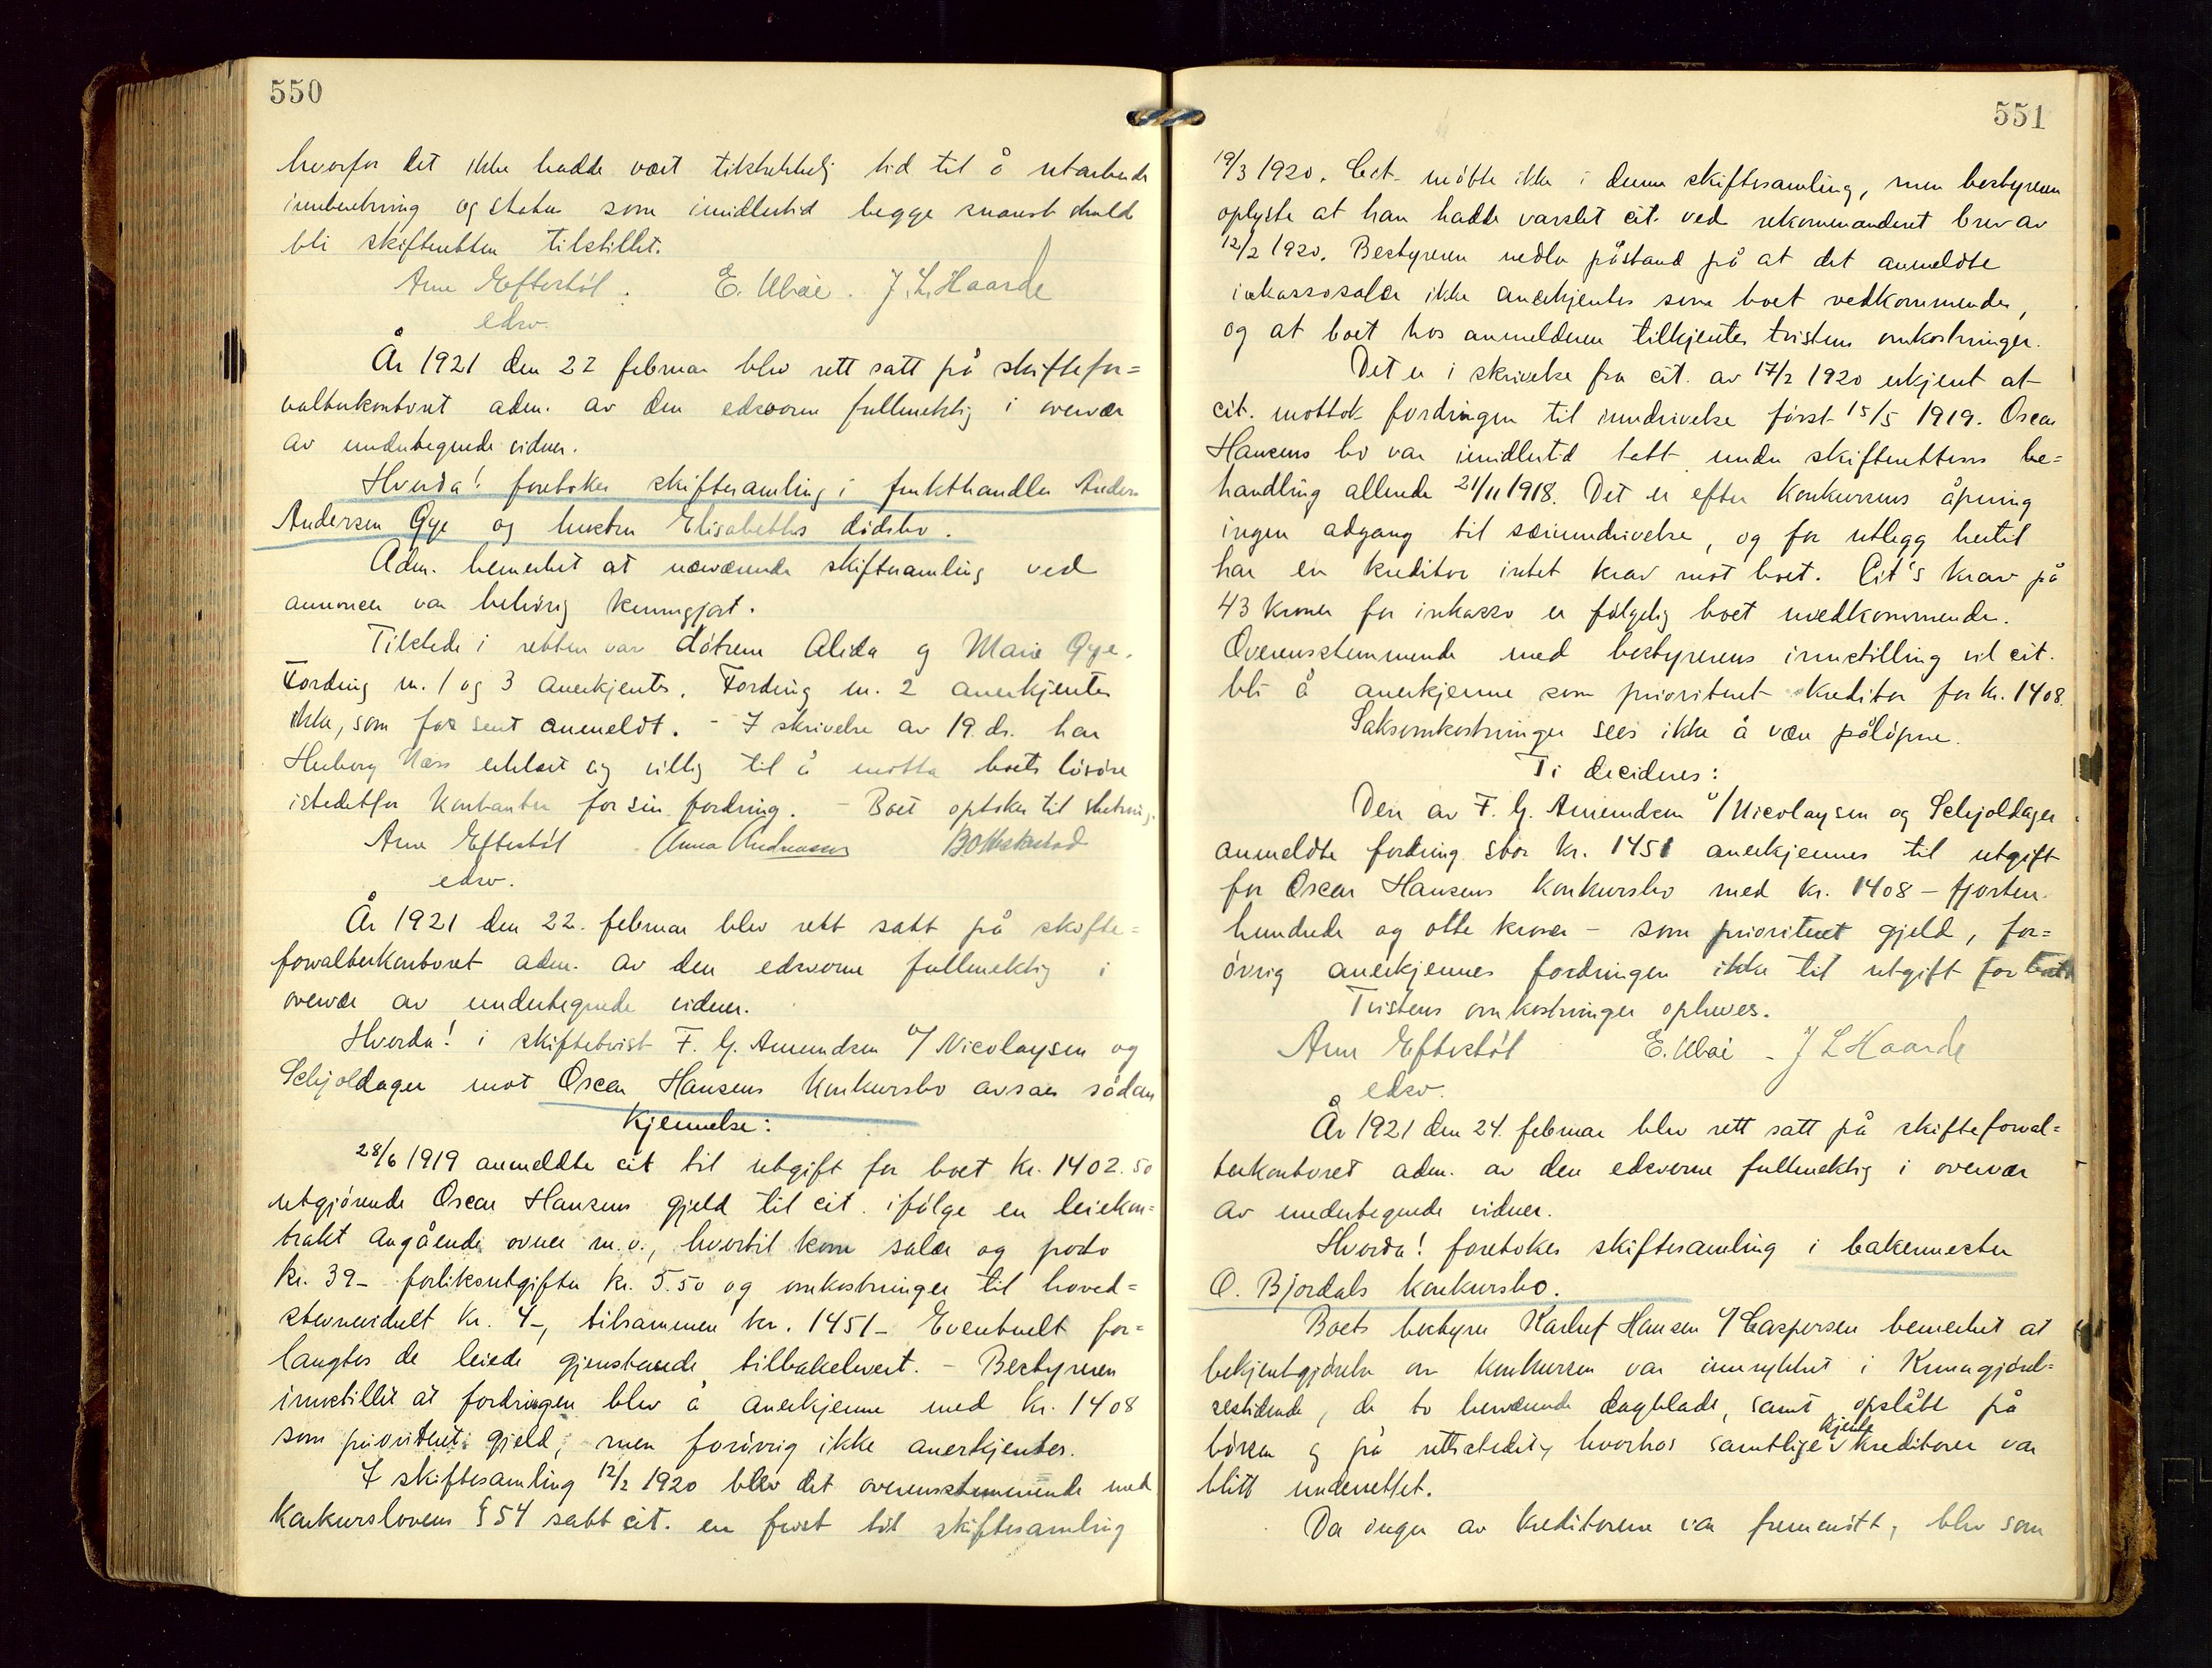 550
hvorfor det ikke hadde vært tilstrekkelig tid til å utarbeide
innberetning og status som imidlertid begge snarest skulde
bli skifteretten tilstillet.
Arne Eftestøl. E. Ubøe. J. L. Haarde
edsv.
År 1921 den 22 februar blev rett satt på skiftefor=
valterkontoret adm. av den edsvorne fullmektig i overvær
av undertegnede vidner.
Hvorda! foretokes skiftesamling i frukthandler Anders
Andersen Gye og hustru Elisabeths dødsbo.
Adm. bemerket at nærværende skiftesamling ved
annoncer var behørig kunngjort.
Tilstede i retten var døtrene Alida og Marie Gye.
Fordring nr. 1 og 3 anerkjentes. Fordring nr. 2 anerkjentes
ikke, som for sent anmeldt. - I skrivelse av 19. ds. har
Næss erklært sig villig til å motta boets løsøre
istedetfor kontanter for sin fordring. - Boet optokes til slutning.
Arne Eftestøl Anna Andreassen
edsv.
År 1921 den 22. februar blev rett satt på skifte=
forvalterkontoret adm. av den edsvorne fullmektig i
overvær av undertegnede vidner.
Hvorda! i skiftetvist F. G. Amundsen v/ Nicolaysen og
Schjoldager mot Oscar Hansens konkursbo avsaes sådan
Kjennelse:
28/6 1919 anmeldte cit til utgift for boet kr. 1402.50
utgjørende Oscar Hansens gjeld til cit. ifølge en leiekon=
trakt angående ovner m.v., hvortil kom salær og porto
kr. 39- forliksutgifter kr. 5.50 og omkostninger til hoved=
stevnevidnet kr. 4-, tilsammen kr. 1451- Eventuelt for=
langtes de leiede gjenstande tilbakelevert. - Bestyreren
innstillet at fordringen blev å anerkjenne med kr. 1408
som prioritert gjeld, men forøvrig ikke anerkjentes.
I skiftesamling 12/2 1920 blev det overensstemmende med
Konkurslovens § 54 satt cit. en frist til skiftesamling
551
19/3 1920. Cit. møtte ikke i denne skiftesamling, men bestyreren
oplyste at han hadde varslet cit. ved rekommanderet brev av
12/2 1920. Bestyreren nedla påstand på at det anmeldte
inkassosalær ikke anerkjentes som boet vedkommende,
og at boet hos anmelderen tilkjentes tvistens omkostninger.
Det er i skrivelse fra cit. av 17/2 1920 erkjent at
cit. mottok fordringen til inndrivelse først 15/5 1919. Oscar
Hansens bo var imidlertid tatt under skifterettens be=
handling allerede 21/11 1918. Det er efter konkursens åpning
ingen adgang til særinndrivelse, og for utlegg hertil
har en kreditor intet krav mot boet. Cit's krav på
43 kroner for inkasso er følgelig boet uvedkommende.
Overensstemmende med bestyrerens innstilling vil cit.
bli å anerkjenne som prioritert kreditor for kr. 1408.
Saksomkostninger sees ikke å være påløpne.
Ti decideres:
Den av F. G. Amundsen v/ Nicolaysen og Schjoldager
anmeldte fordring stor kr. 1451 anerkjennes til utgift
for Oscar Hansens konkursbo med kr. 1408 - fjorten
hundrede og otte kroner - som prioritert gjeld, for=
øvrig anerkjennes fordringen ikke til utgift for
Tvistens omkostninger opheves.
Arne Eftestøl E. Ubøe - J L Haarde
edsv.
År 1921 den 24. februar blev rett satt på skifteforval=
terkontoret adm. av den edsvorne fullmektig i overvær
av undertegnede vidner.
Hvorda! foretokes skiftesamling i bakermester
O. Bjordals konkursbo.
Boets bestyrer Karluf Hansen v/ Caspersen bemerket at
bekjentgjørelse om konkursen var innrykket i Kunngjørel=
sestidende, de to herværende dagblade, samt opslått på
børsen og på rettsstedet, hvorhos samtlige kjente kreditorer var
blitt underrettet.
Da ingen av kreditorene var fremmøtt, blev som